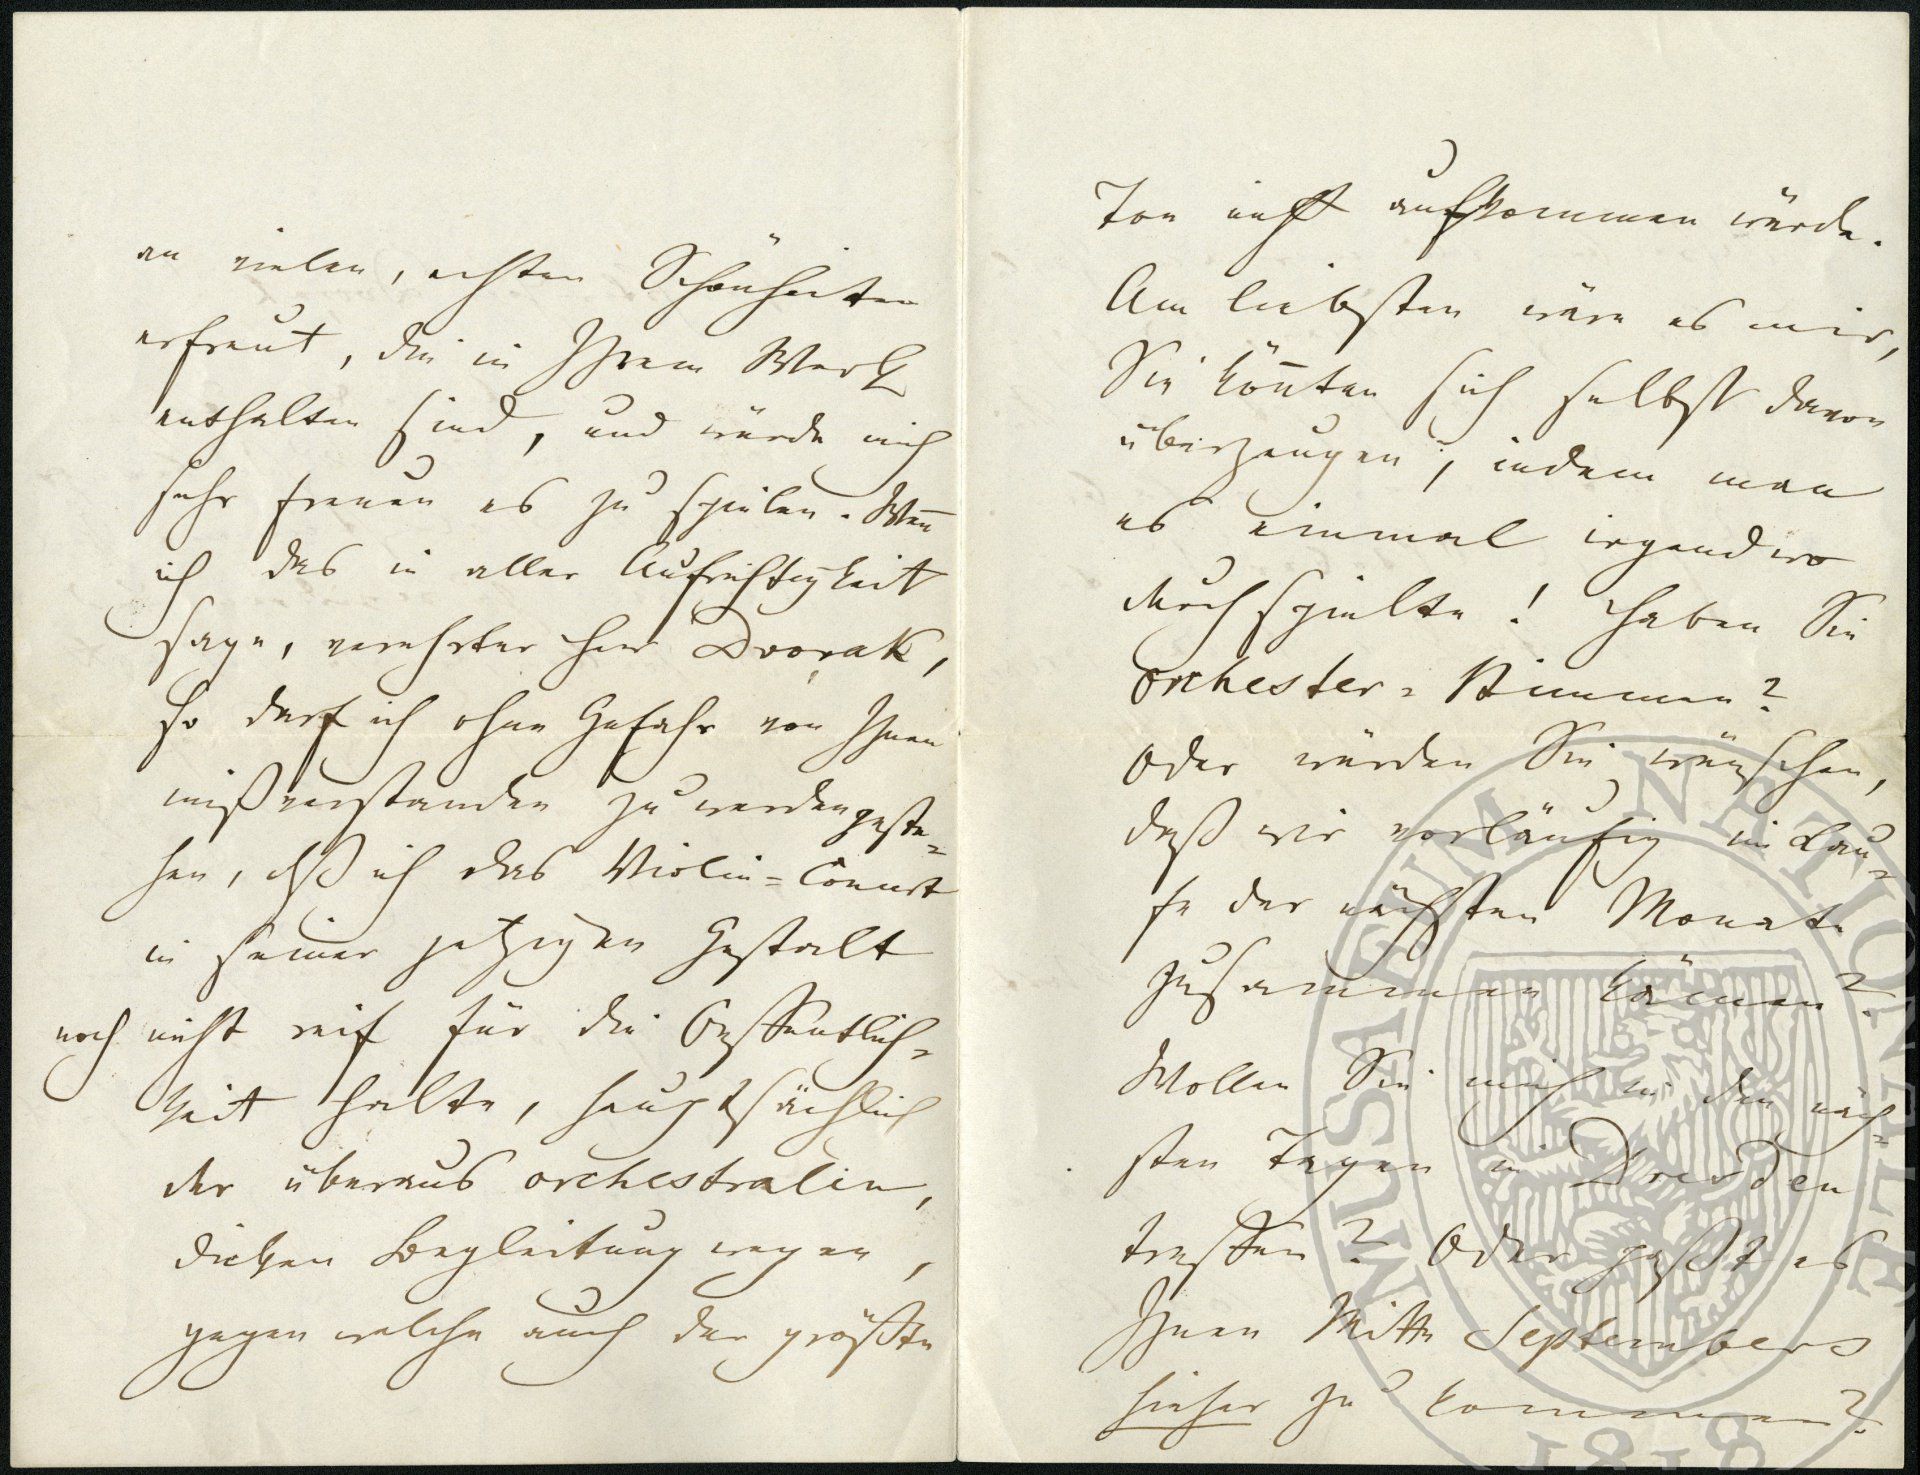 an vielen, echten Schönheiten
erfreut, die in Ihrem Werk
enthalten sind, und würde mich
sehr freuen es zu spielen. Weñ
ich das in aller Aufrichtigkeit
sage, verehrter Herr Dvořak,
so darf ich ohne Gefahr von Ihnen
mißverstanden zu werden geste-
hen, dß ich das Violin-Concert
in seiner jetzigen Gestalt
noch nicht reif für die Oeffentlich-
keit halte, hauptsächlich
der überaus orchestralen,
dicken Begleitung wegen,
gegen welche auch der größte
Ton nicht aufkommen würde.
Am liebsten wäre es mir,
Sie köñten sich selbst davon
überzeugen, indem man
es einmal irgendwo
durchspielte! Haben Sie
Orchester-Stimmen?
Oder würden Sie wünschen,
daß wir vorläufig im Lau-
fe der nächsten Monate
zusammen kämen?
Wollen Sie mich in den näch-
sten Tagen in Dresden
treffen? Oder paßt es
Ihnen Mitte Septembers
hieher zu kommen?
MUSAEUM NATIONALE
1818